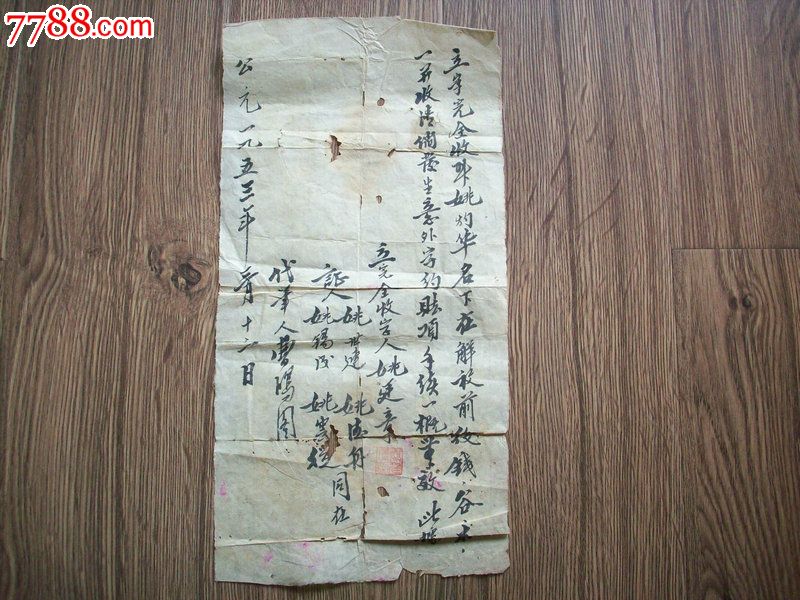 7788.com
中国收藏热线
立字完全收账姚灼华名下在解放前放钱谷
一并收清倘发生意外字约账项手续一概无效此据
立完全收字人姚廷章
证人姚世建 姚德舟
姚锡成 姚 同在
代笔人曹鸿图
公元一九五三年 月十二日